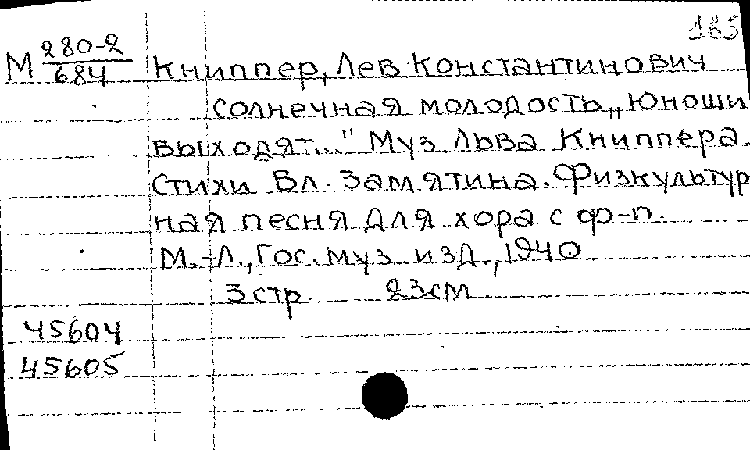 185
М 280-2/684 Книппер, Лев Константинович
Солнечная молодость „Юноши
выходят..." Муз Льва Книппера.
Стихи Вл. Замятина. Физкультур
ная песня для хора с ф-п.
М.-Л., Гос. муз изд., 1940
3 стр. 23 см
45604
45605